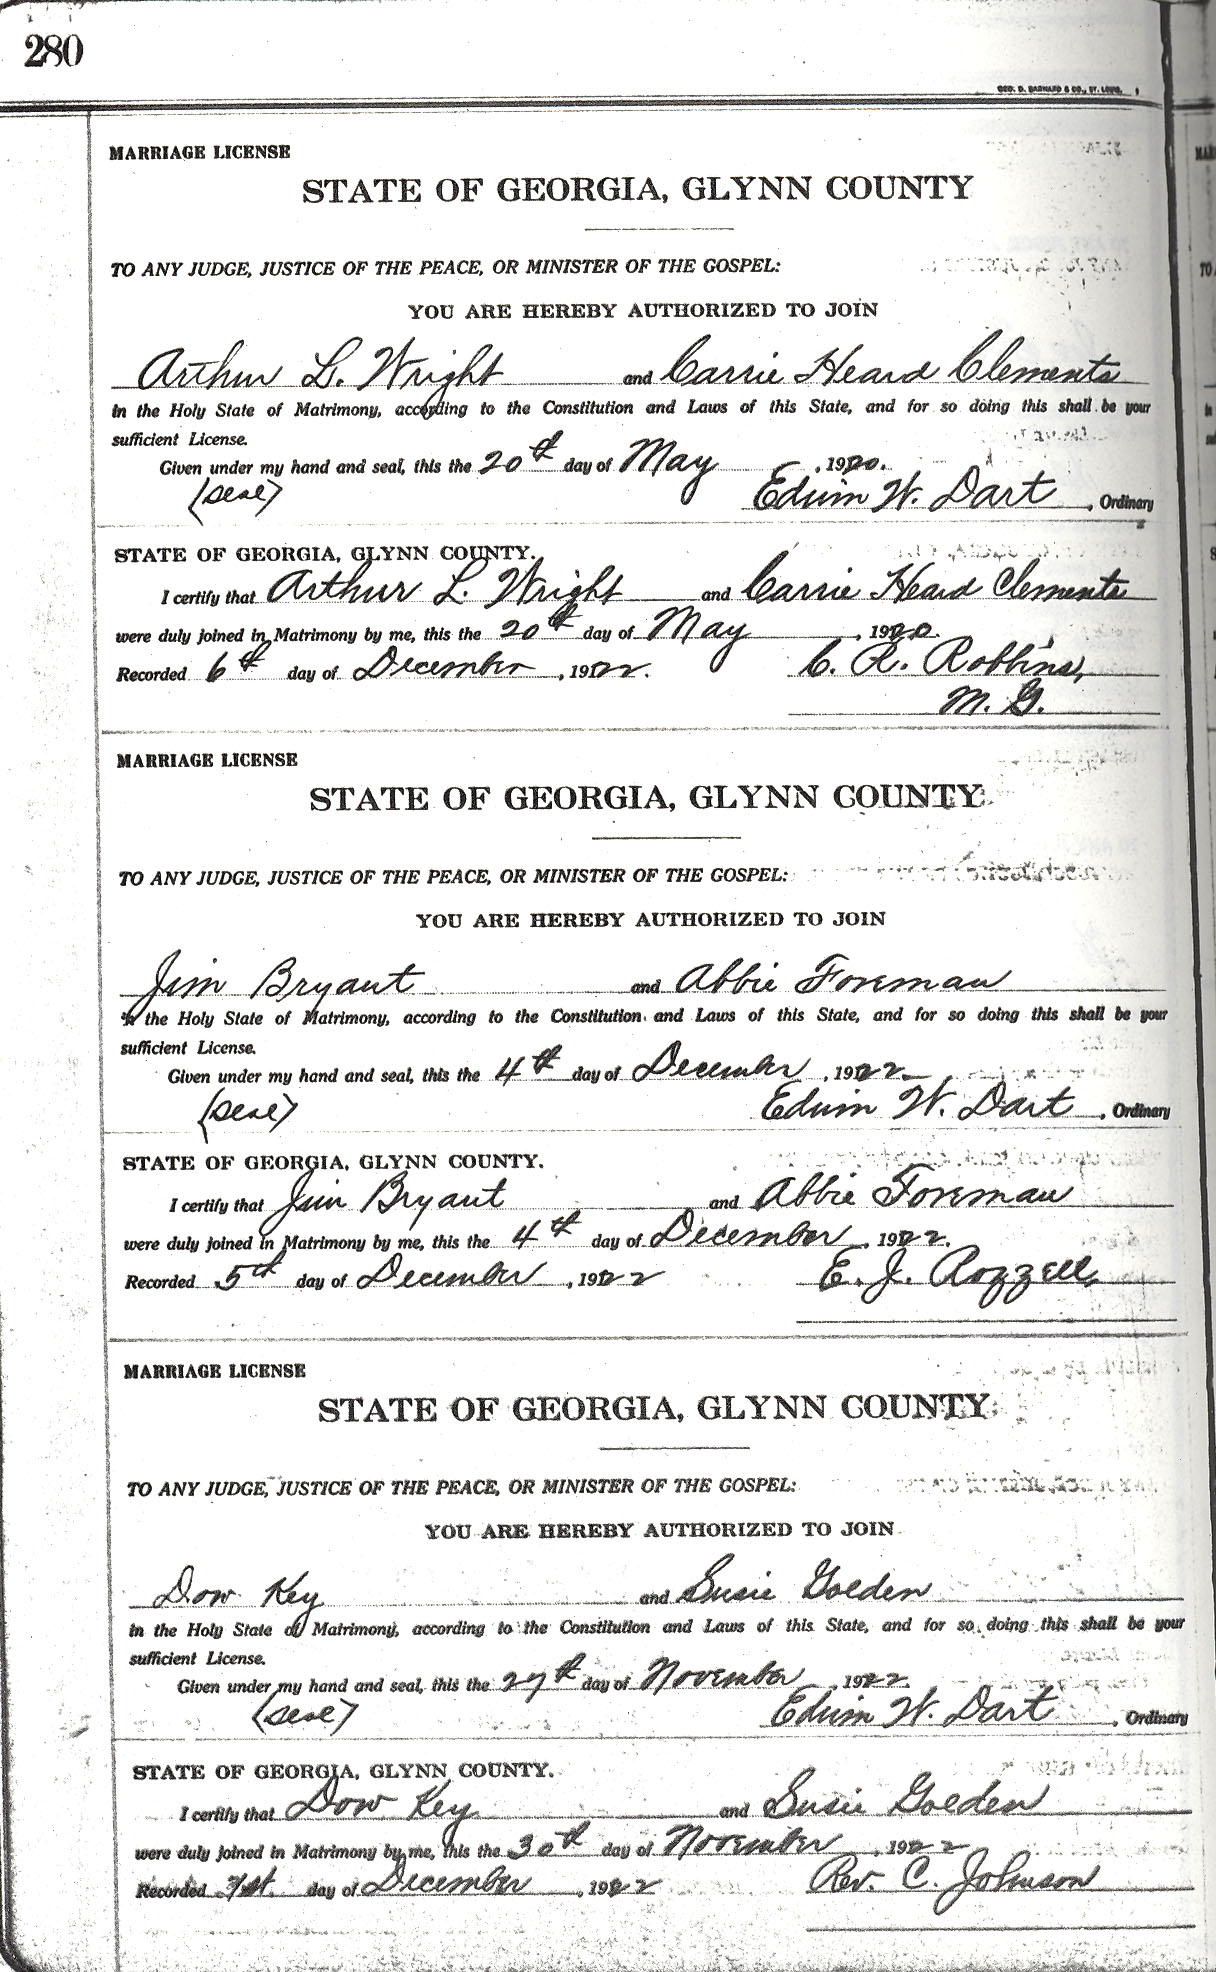 280
GEO. D. BARNARD & CO., ST. LOUIS.
MARRIAGE LICENSE
STATE OF GEORGIA, GLYNN COUNTY
TO ANY JUDGE, JUSTICE OF THE PEACE, OR MINISTER OF THE GOSPEL:
YOU ARE HEREBY AUTHORIZED TO JOIN
Arthur L. Wright and Carrie Heard Clements
in the Holy State of Matrimony, according to the Constitution and Laws of this State, and for so doing this shall be your
sufficient License.
Given under my hand and seal, this the 20th day of May, 1920.
(seal) Edwin W. Dart, Ordinary
STATE OF GEORGIA, GLYNN COUNTY.
I certify that Arthur L. Wright and Carrie Heard Clements
were duly joined in Matrimony by me, this the 20th day of May, 1920.
Recorded 6th day of December, 1922. C. R. Robbins,
M. G.
MARRIAGE LICENSE
STATE OF GEORGIA, GLYNN COUNTY
TO ANY JUDGE, JUSTICE OF THE PEACE, OR MINISTER OF THE GOSPEL:
YOU ARE HEREBY AUTHORIZED TO JOIN
Jim Bryant and Abbie Foreman
in the Holy State of Matrimony, according to the Constitution and Laws of this State, and for so doing this shall be your
sufficient License.
Given under my hand and seal, this the 4th day of December, 1922
(seal) Edwin W. Dart, Ordinary
STATE OF GEORGIA, GLYNN COUNTY.
I certify that Jim Bryant and Abbie Foreman
were duly joined in Matrimony by me, this the 4th day of December, 1922.
Recorded 5th day of December, 1922 E. J. Rozzell,
MARRIAGE LICENSE
STATE OF GEORGIA, GLYNN COUNTY
TO ANY JUDGE, JUSTICE OF THE PEACE, OR MINISTER OF THE GOSPEL:
YOU ARE HEREBY AUTHORIZED TO JOIN
Dow Key and Susie Golden
in the Holy State of Matrimony, according to the Constitution and Laws of this State, and for so doing this shall be your
sufficient License.
Given under my hand and seal, this the 27th day of November, 1922.
(seal) Edwin W. Dart, Ordinary
STATE OF GEORGIA, GLYNN COUNTY.
I certify that Dow Key and Susie Golden
were duly joined in Matrimony by me, this the 30th day of November, 1922
Recorded day of December, 1922 Rev. C. Johnson